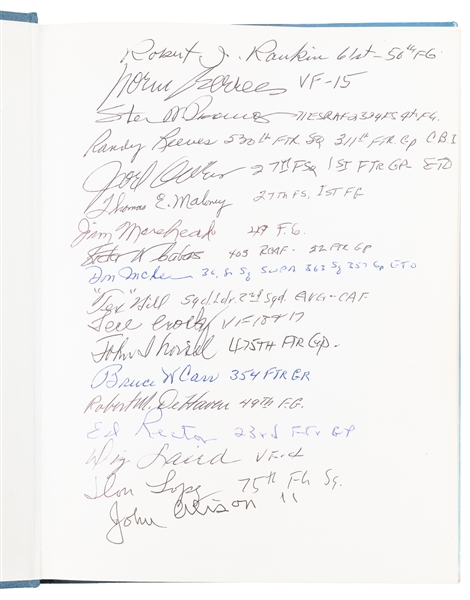 Robert J. Rankin 61st - 56th FG
Norm Berree VF-15
Steve N Pisanos 71ESRAF 2334FS 4th F.G.
Randy Reeves 530th FTR Sq 311th FTR Gp C.B.I
Joel Owens 27th FSq 1st FTR GP- ETO
Thomas E. Maloney 27th FS, 1ST FG
Jim Morehead 49 F.G.
403 RCAF - 52 FTR GP
Don McKee 36, Sq SWPA 363 Sq 357 Gp ETO
"Tex" Hill Sqd. Ldr. 2nd Sqd. AVG-CAF
Tede Crosby VF 18 & 17
John S Loisel 475TH FTR Gp.
Bruce W Carr 354 FTR GR
Robert M. DeHaven 49TH F.G.
Ed Rector 23rd Ftr Gp
Diz Laird VF-4
Don Lopez 75th Ftr Sq.
John Alison 11